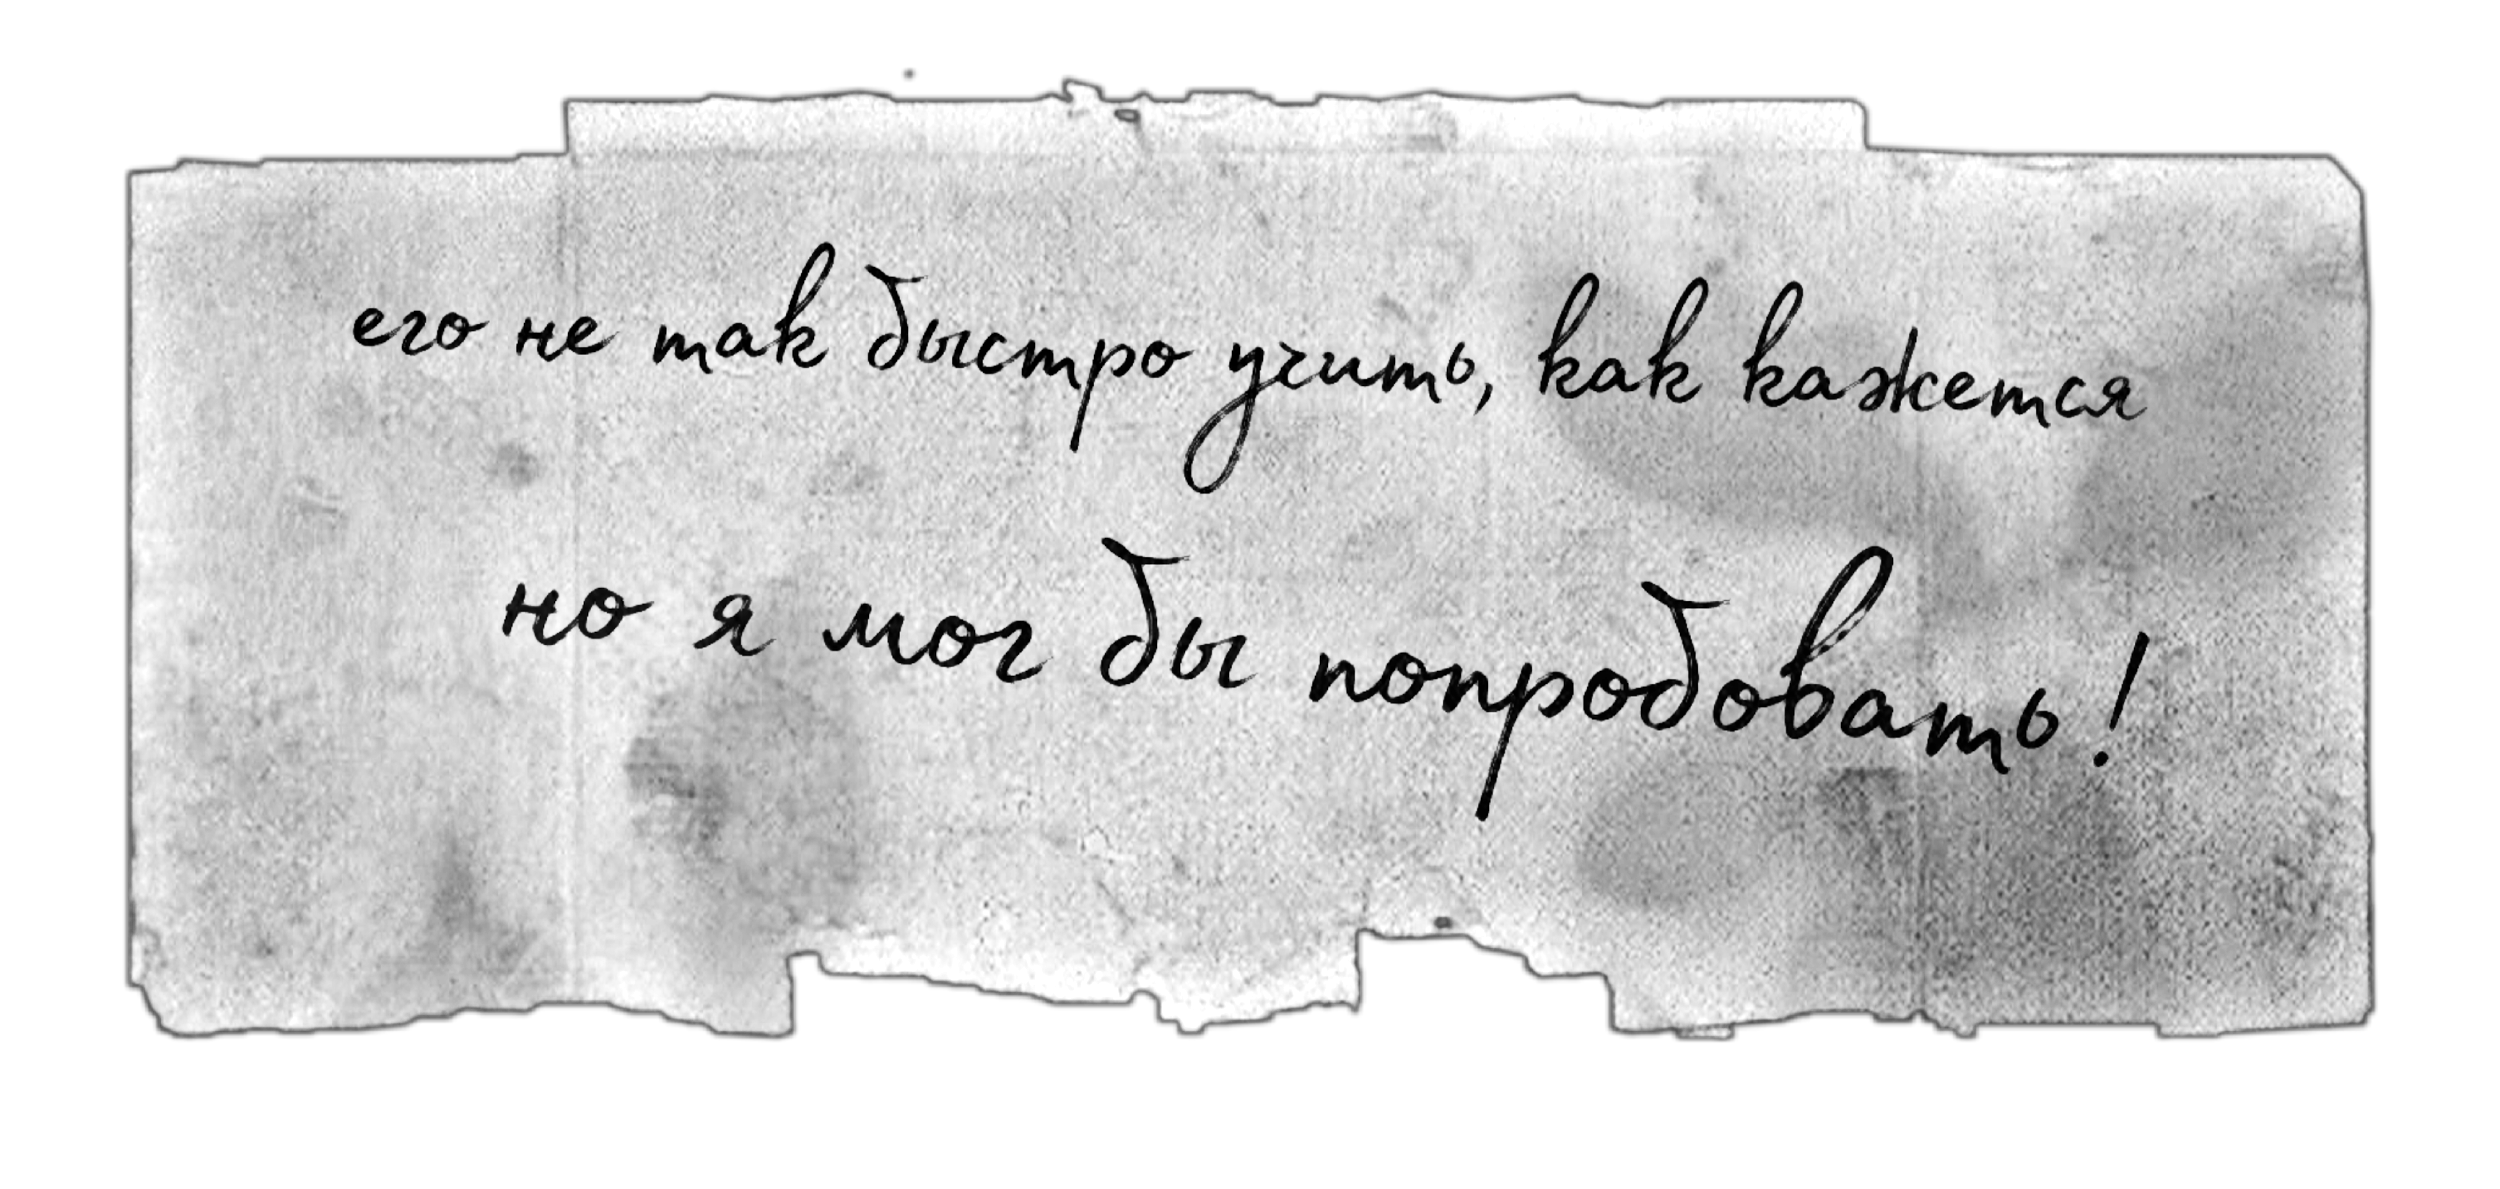 его не так быстро учить, как кажется
но я мог бы попробовать!